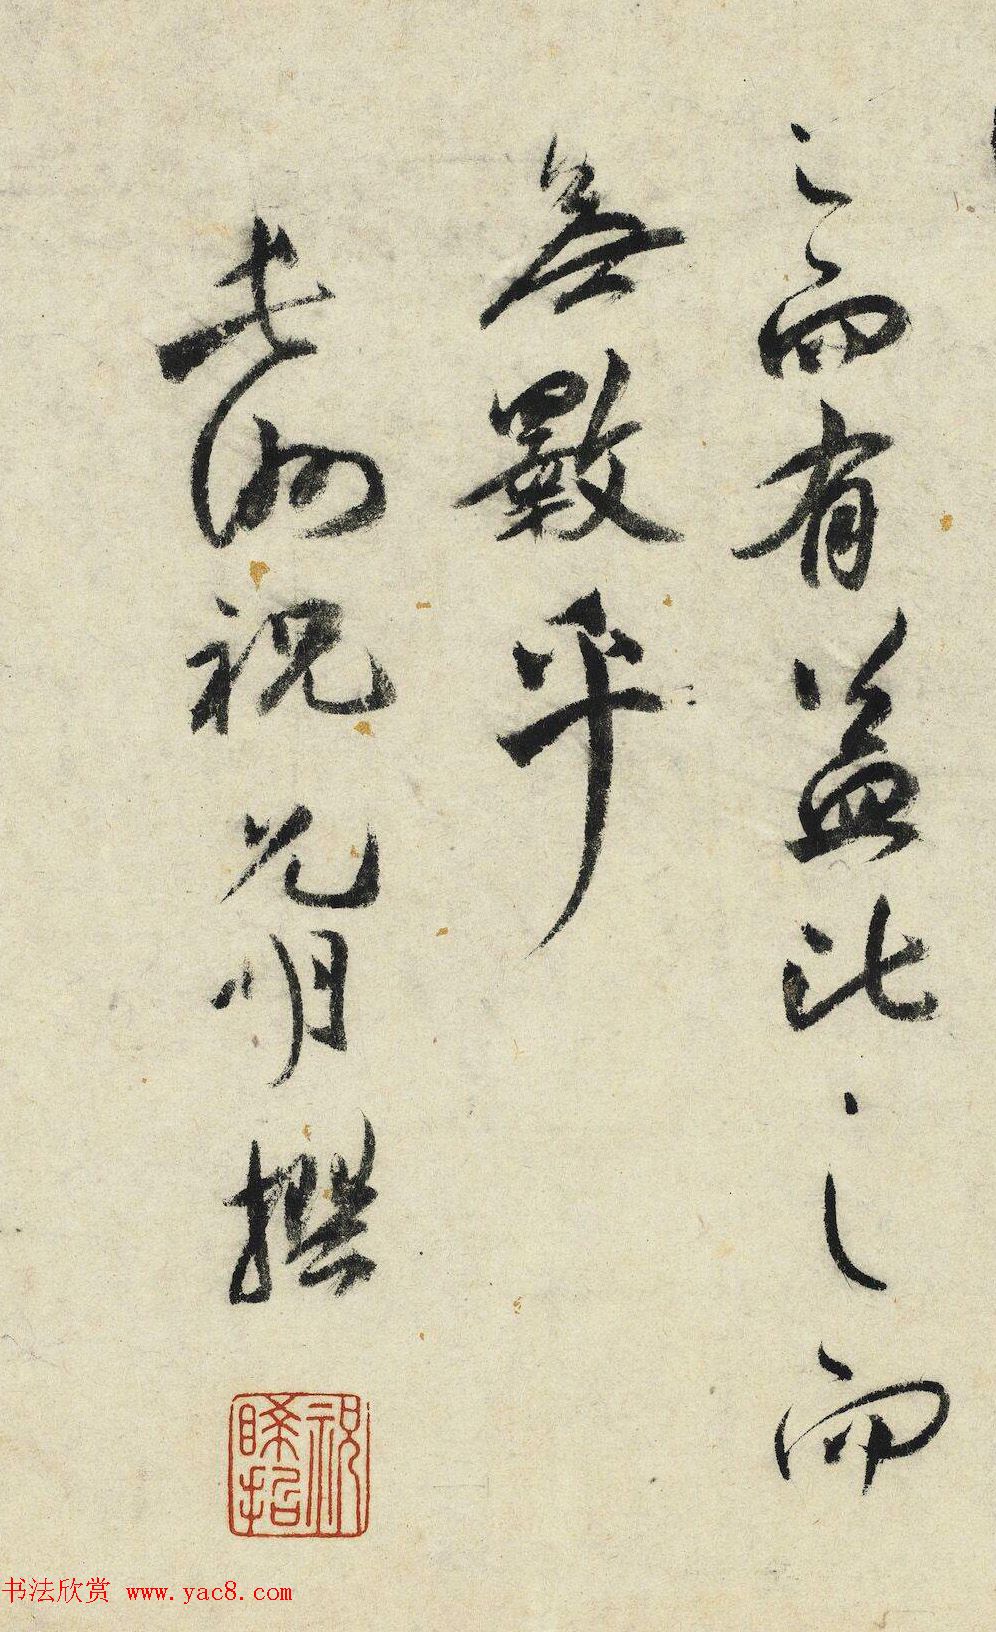 之而有益比之而
無斁乎
長洲祝允明撰
祝希哲
书法欣赏 www.yac8.com